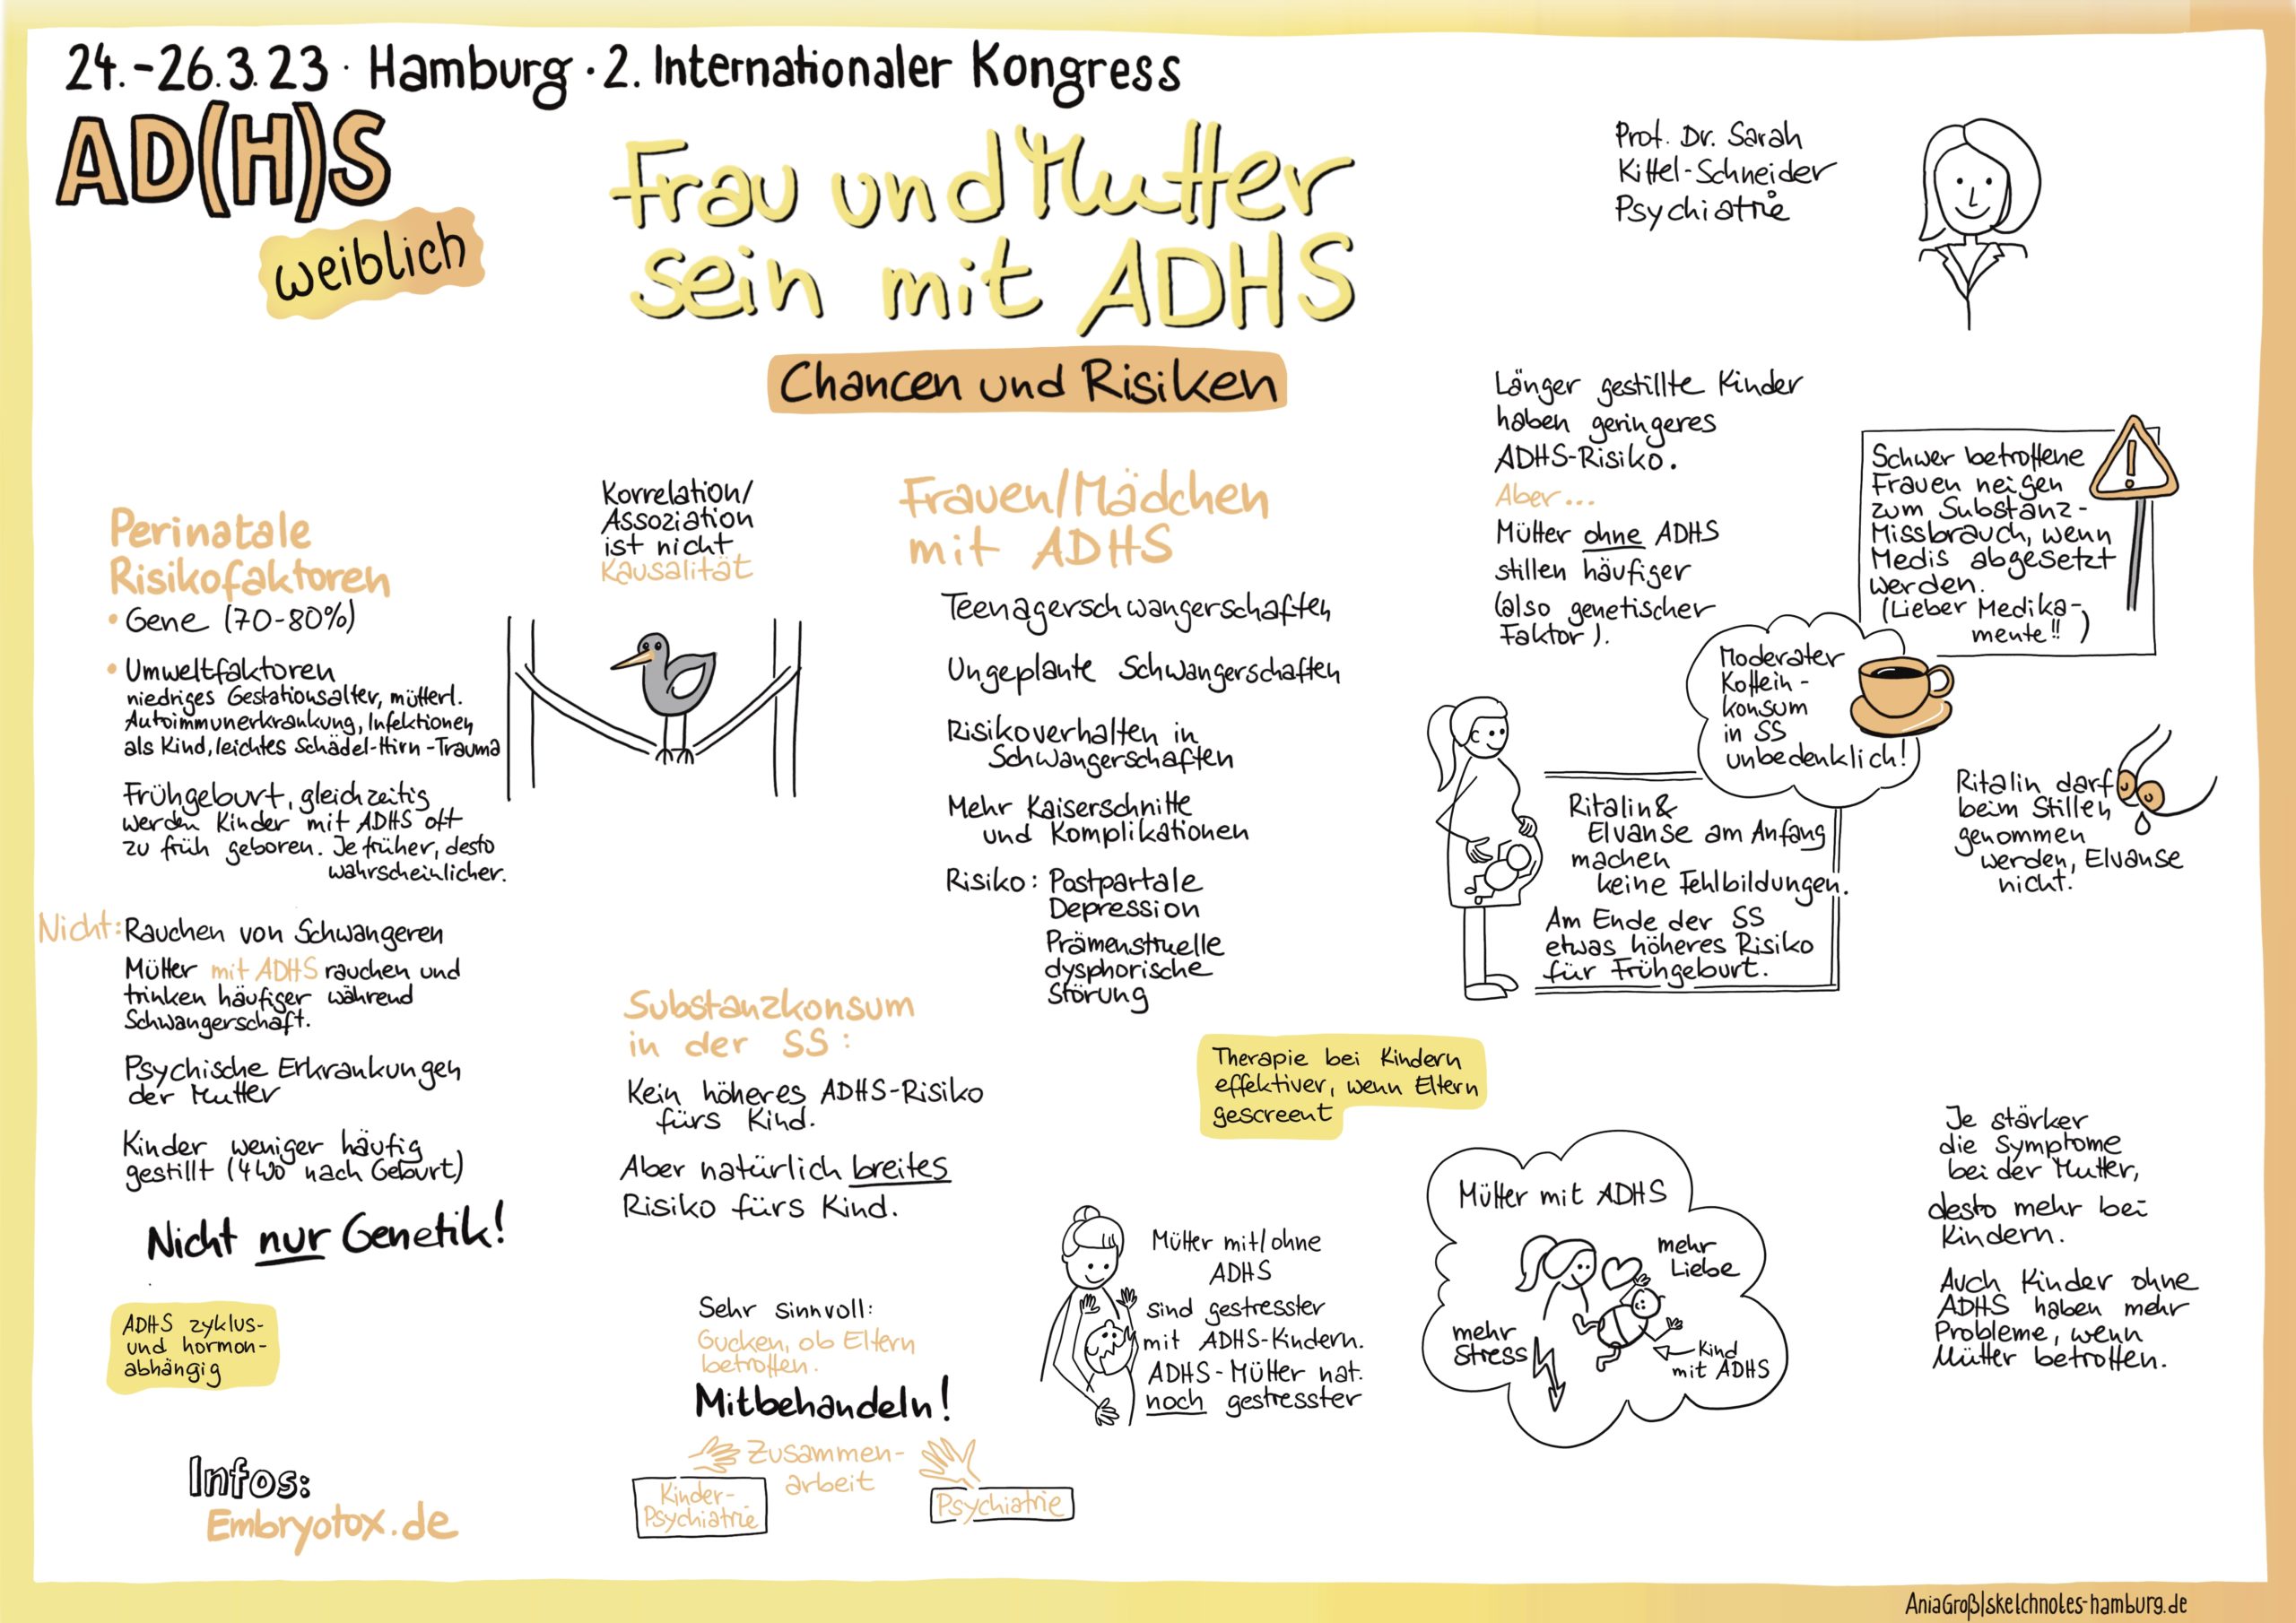 24.-26.3.23 · Hamburg · 2. Internationaler Kongress
AD(H)S
weiblich
Frau und Mutter
sein mit ADHS
Chancen und Risiken
Prof. Dr. Sarah
Kittel-Schneider
Psychiatrie
Perinatale
Risikofaktoren
• Gene (70-80%)
• Umweltfaktoren
niedriges Gestationsalter, mütterl.
Autoimmunerkrankung, Infektionen
als Kind, leichtes Schädel-Hirn-Trauma
Frühgeburt, gleichzeitig
werden Kinder mit ADHS oft
zu früh geboren. Je früher, desto
wahrscheinlicher.
Nicht: Rauchen von Schwangeren
Mütter mit ADHS rauchen und
trinken häufiger während
Schwangerschaft.
Psychische Erkrankungen
der Mutter
Kinder weniger häufig
gestillt (4 Wo nach Geburt)
Nicht nur Genetik!
ADHS zyklus-
und hormon-
abhängig
Infos:
Embryotox.de
Korrelation/
Assoziation
ist nicht
Kausalität
Substanzkonsum
in der SS:
Kein höheres ADHS-Risiko
fürs Kind.
Aber natürlich breites
Risiko fürs Kind.
Sehr sinnvoll:
Gucken, ob Eltern
betroffen.
Mitbehandeln!
Zusammen-
arbeit
Kinder-
Psychiatrie
Psychiatrie
Frauen/Mädchen
mit ADHS
Teenagerschwangerschaften
Ungeplante Schwangerschaften
Risikoverhalten in
Schwangerschaften
Mehr Kaiserschnitte
und Komplikationen
Risiko: Postpartale
Depression
Prämenstruelle
dysphorische
Störung
Therapie bei Kindern
effektiver, wenn Eltern
gescreent
Mütter mit/ohne
ADHS
sind gestresster
mit ADHS-Kindern.
ADHS-Mütter nat.
noch gestresster
Länger gestillte Kinder
haben geringeres
ADHS-Risiko.
Aber...
Mütter ohne ADHS
stillen häufiger
(also genetischer
Faktor).
Schwer betroffene
Frauen neigen
zum Substanz-
Missbrauch, wenn
Medis abgesetzt
werden.
(Lieber Medika-
mente!!)
Moderater
Koffein-
konsum
in SS
unbedenklich!
Ritalin &
Elvanse am Anfang
machen
keine Fehlbildungen.
Am Ende der SS
etwas höheres Risiko
für Frühgeburt.
Ritalin darf
beim Stillen
genommen
werden, Elvanse
nicht.
Mütter mit ADHS
mehr
Liebe
mehr
Stress
Kind
mit ADHS
Je stärker
die Symptome
bei der Mutter,
desto mehr bei
Kindern.
Auch Kinder ohne
ADHS haben mehr
Probleme, wenn
Mütter betroffen.
AniaGroß|sketchnotes-hamburg.de